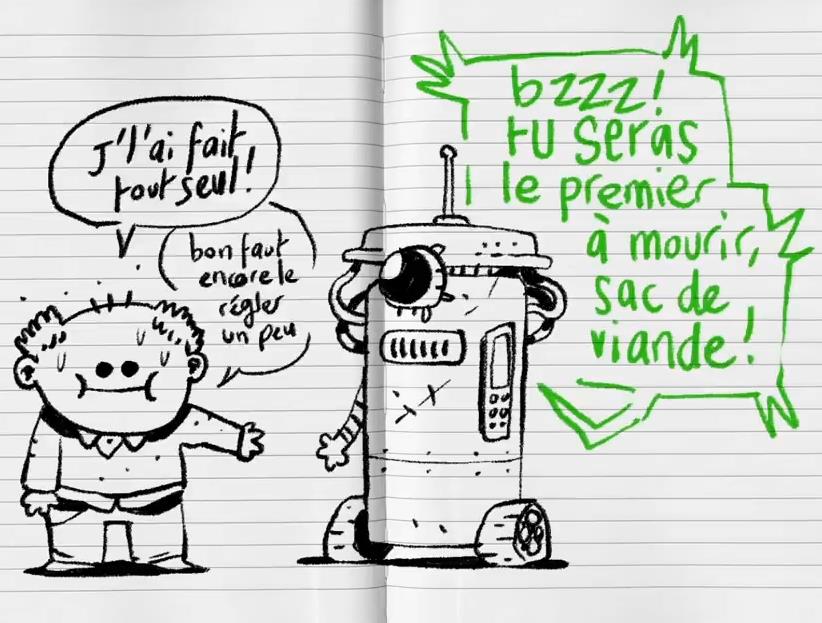 J'l'ai fait
tout seul!
bon faut
encore le
régler
un peu
bzzz!
tu seras
le premier
à mourir,
sac de
viande!